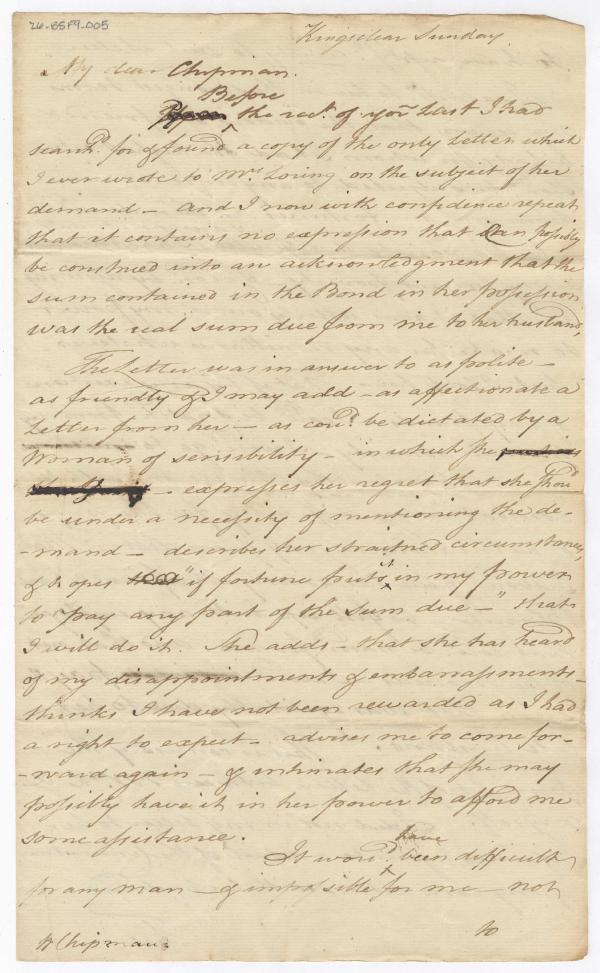 26-BSF9-005
Kingsclear Sunday.
My dear Chipman.
Before
the rect. of yor. Last I had
search'd for & found a copy of the only Letter which
I ever wrote to Mrs. Loring on the subject of her
demand - and I now with confidence repeat
that it contains no expression that can possibly
be construed into an acknowledgment that the
sum contained in the Bond in her possession
was the real sum due from me to her husband,
The Letter was in answer to as polite -
as friendly & I may add - as affectionate a
Letter from her - as coud. be dictated by a
Woman of sensibility - in which she
- expresses her regret that she shoud.
be under a necessity of mentioning the de-
-mand - describes her straitned circumstances,
& hopes "if fortune puts it in my power
to pay any part of the sum due -" that
I will do it. She adds - that she has heard
of my disappointments & embarrassments -
thinks I have not been rewarded as I had
a right to expect - advises me to come for-
-ward again - & intimates that she may
possibly have it in her power to afford me
some assistance.
It woud. have been difficult
for any man - & impossible for me - not
to
W Chipman: